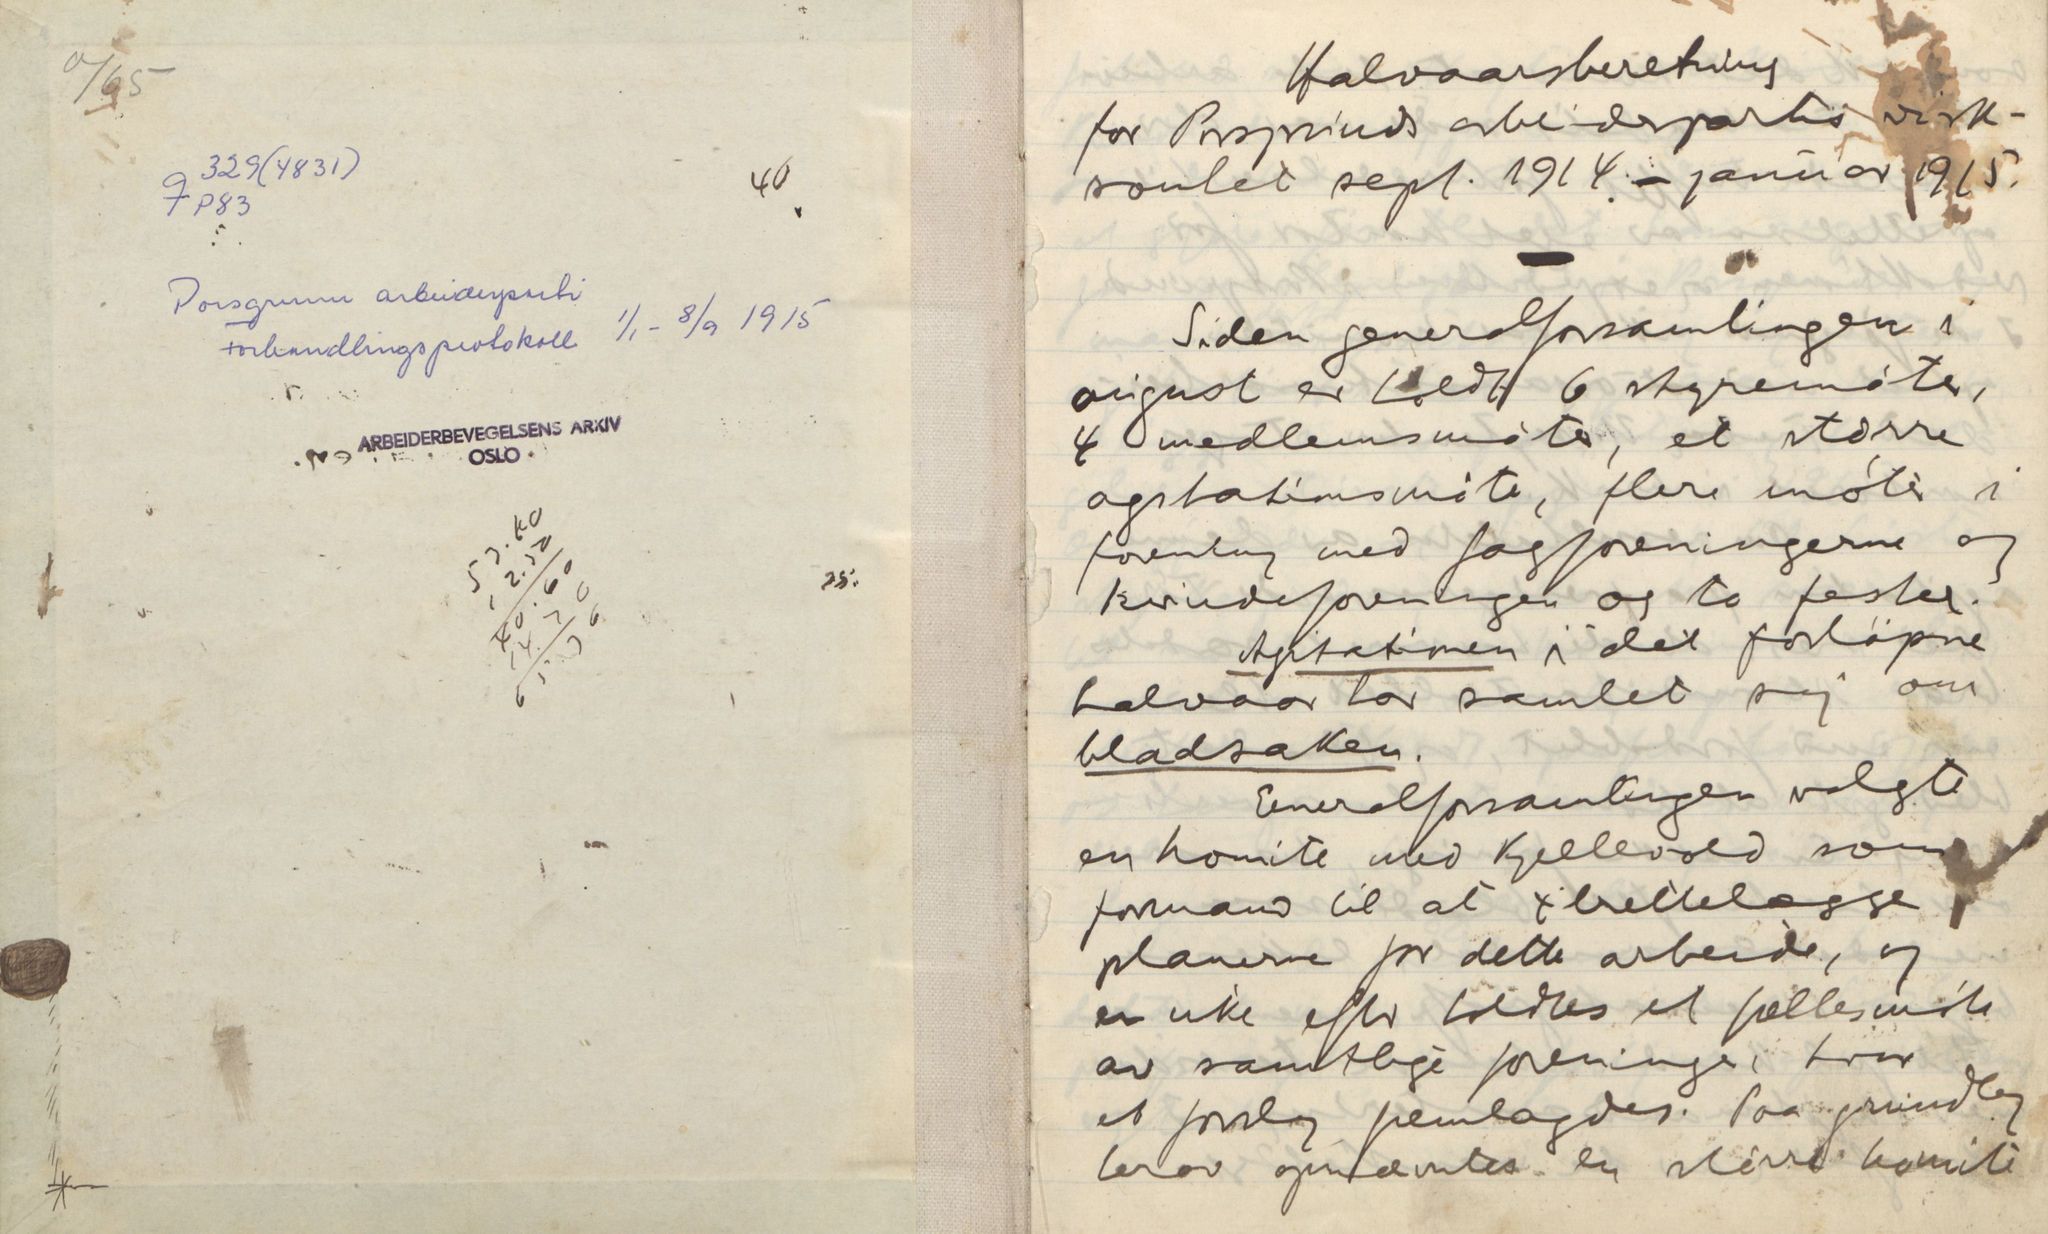 a/65
329(4831)
q P83
40
Porsgrunn arbeiderparti
forhandlingsprotokoll 1/1 - 8/9 1915
ARBEIDERBEVEGELSENS ARKIV
OSLO
25:
Halvaarsberetning
for Porsgrunds arbeiderpartis virk-
somhet sept. 1914 - januar 1915.
Siden generalforsamlingen i
august er holdt 6 styremöter,
4 medlemsmöter, et större
agitationsmöte, flere möter i
forening med fagforeningerne og
kvindeforeningen og to fester.
Agitationen i det forløpne
halvaar har samlet sig om
bladsaken.
Generalforsamlingen valgte
en komite med Kjellevold som
formand til at tilrettelægge
planerne for dette arbeide, og
en uke efter holdtes et fællesmöte
av samtlige foreninger, hvor
et forslag fremlagdes. Paa grundlag
herav opnævntes en större komite